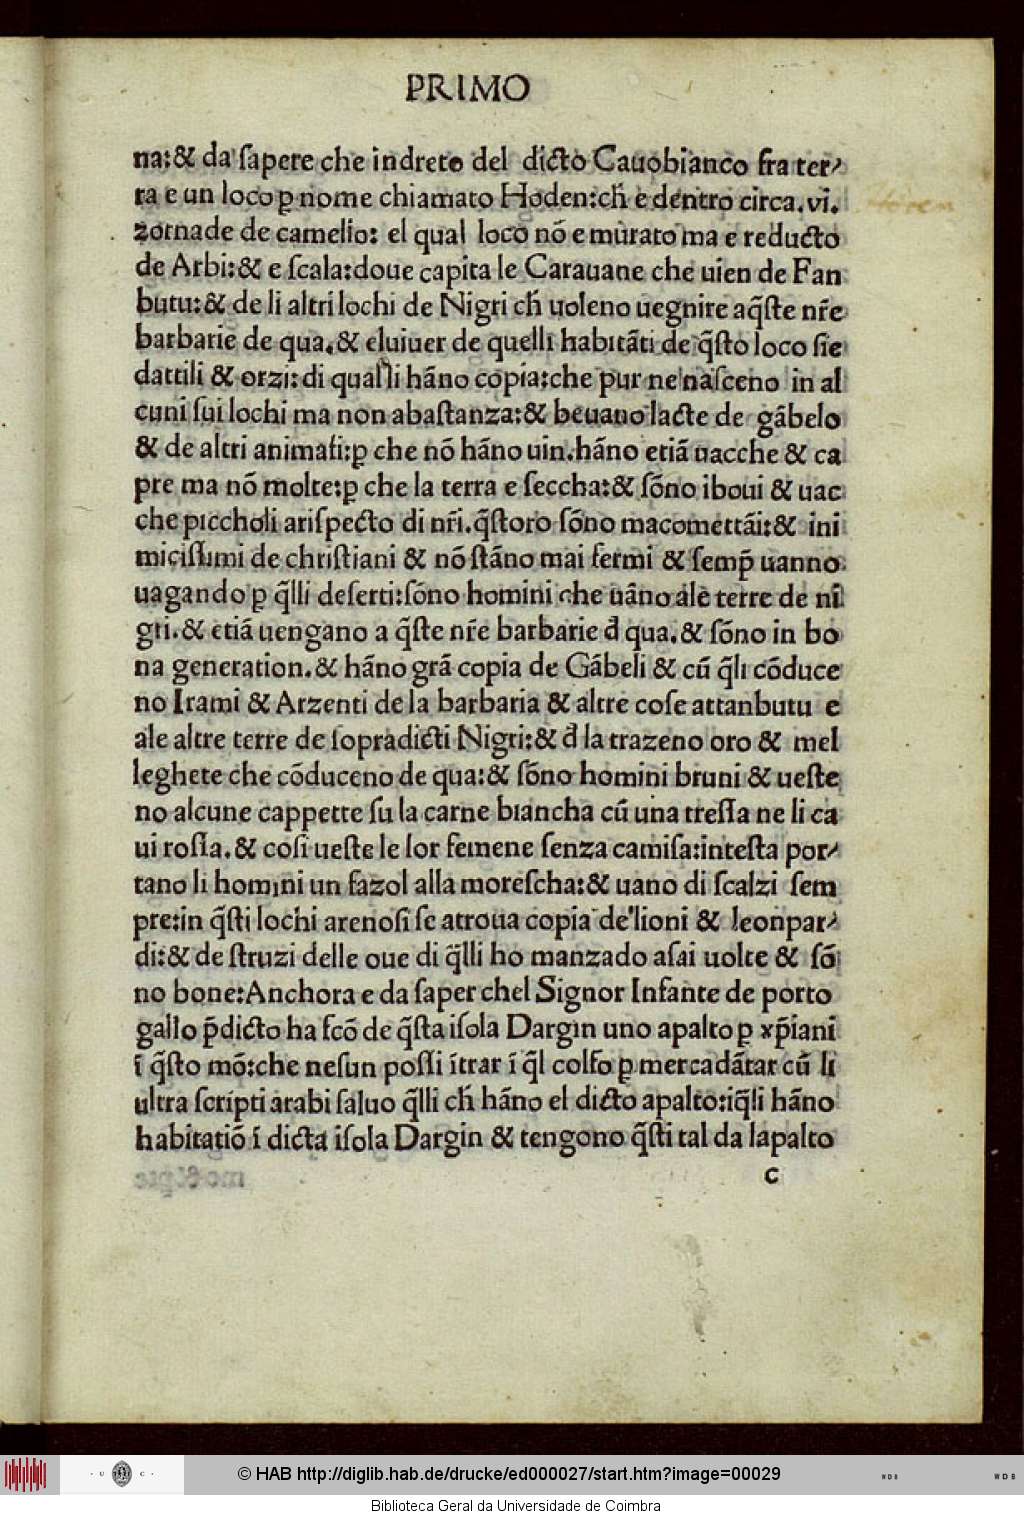 PRIMO
na:& da sapere che indreto del dicto Cauobianco fra ter-
ra e un loco ꝑ nome chiamato Hoden:ch̄ e dentro circa.vi.
zornade de camelio: el qual loco nō e murato ma e reducto
de Arbi:& e scala:doue capita le Carauane che uien de Fan
butu:& de li altri lochi de Nigri ch̄ uoleno uegnire aq̄ste nr̄e
barbarie de qua.& eluiuer de quelli habitāti de q̄sto loco sie
dattili & orzi:di quali hāno copia:che pur ne nasceno in al
cuni sui lochi ma non abastanza:& beuano lacte de gābelo
& de altri animali:ꝑ che nō hāno uin.hāno etiā uacche & ca
pre ma nō molte:ꝑ che la terra e seccha:& sōno iboui & uac
che piccholi arispecto di nr̄i.q̄storo sōno macomettāi:& ini
micissimi de christiani & nō stāno mai fermi & semp̄ uanno
uagando ꝑ q̄lli deserti:sōno homini che uāno ale terre de ni
gri.& etiā uengano a q̄ste nr̄e barbarie đ qua.& sōno in bo
na generation.& hāno grā copia de Gābeli & cū q̄li cōduce
no Irami & Arzenti de la barbaria & altre cose attanbutu e
ale altre terre de sopradicti Nigri:& đ la trazeno oro & mel
leghete che cōduceno de qua:& sōno homini bruni & ueste
no alcune cappette su la carne biancha cū una tressa ne li ca
ui rossa.& cosi ueste le lor femene senza camisa:intesta por-
tano li homini un fazol alla morescha:& uano di scalzi sem
pre:in q̄sti lochi arenosi se atroua copia de lioni & leonpar-
di:& de struzi delle oue di q̄lli ho manzado asai uolte & sō
no bone:Anchora e da saper chel Signor Infante de porto
gallo p̄dicto ha fcō de q̄sta isola Dargin uno apalto ꝑ xp̄iani
ī q̄sto mō:che nesun possi ītrar ī q̄l colfo ꝑ mercadātar cū li
ultra scripti arabi saluo q̄lli ch̄ hāno el dicto apalto:iq̄li hāno
habitatiō ī dicta isola Dargin & tengono q̄sti tal da lapalto
c
© HAB http://diglib.hab.de/drucke/ed000027/start.htm?image=00029
· U C ·
W D B
W D B
Biblioteca Geral da Universidade de Coimbra